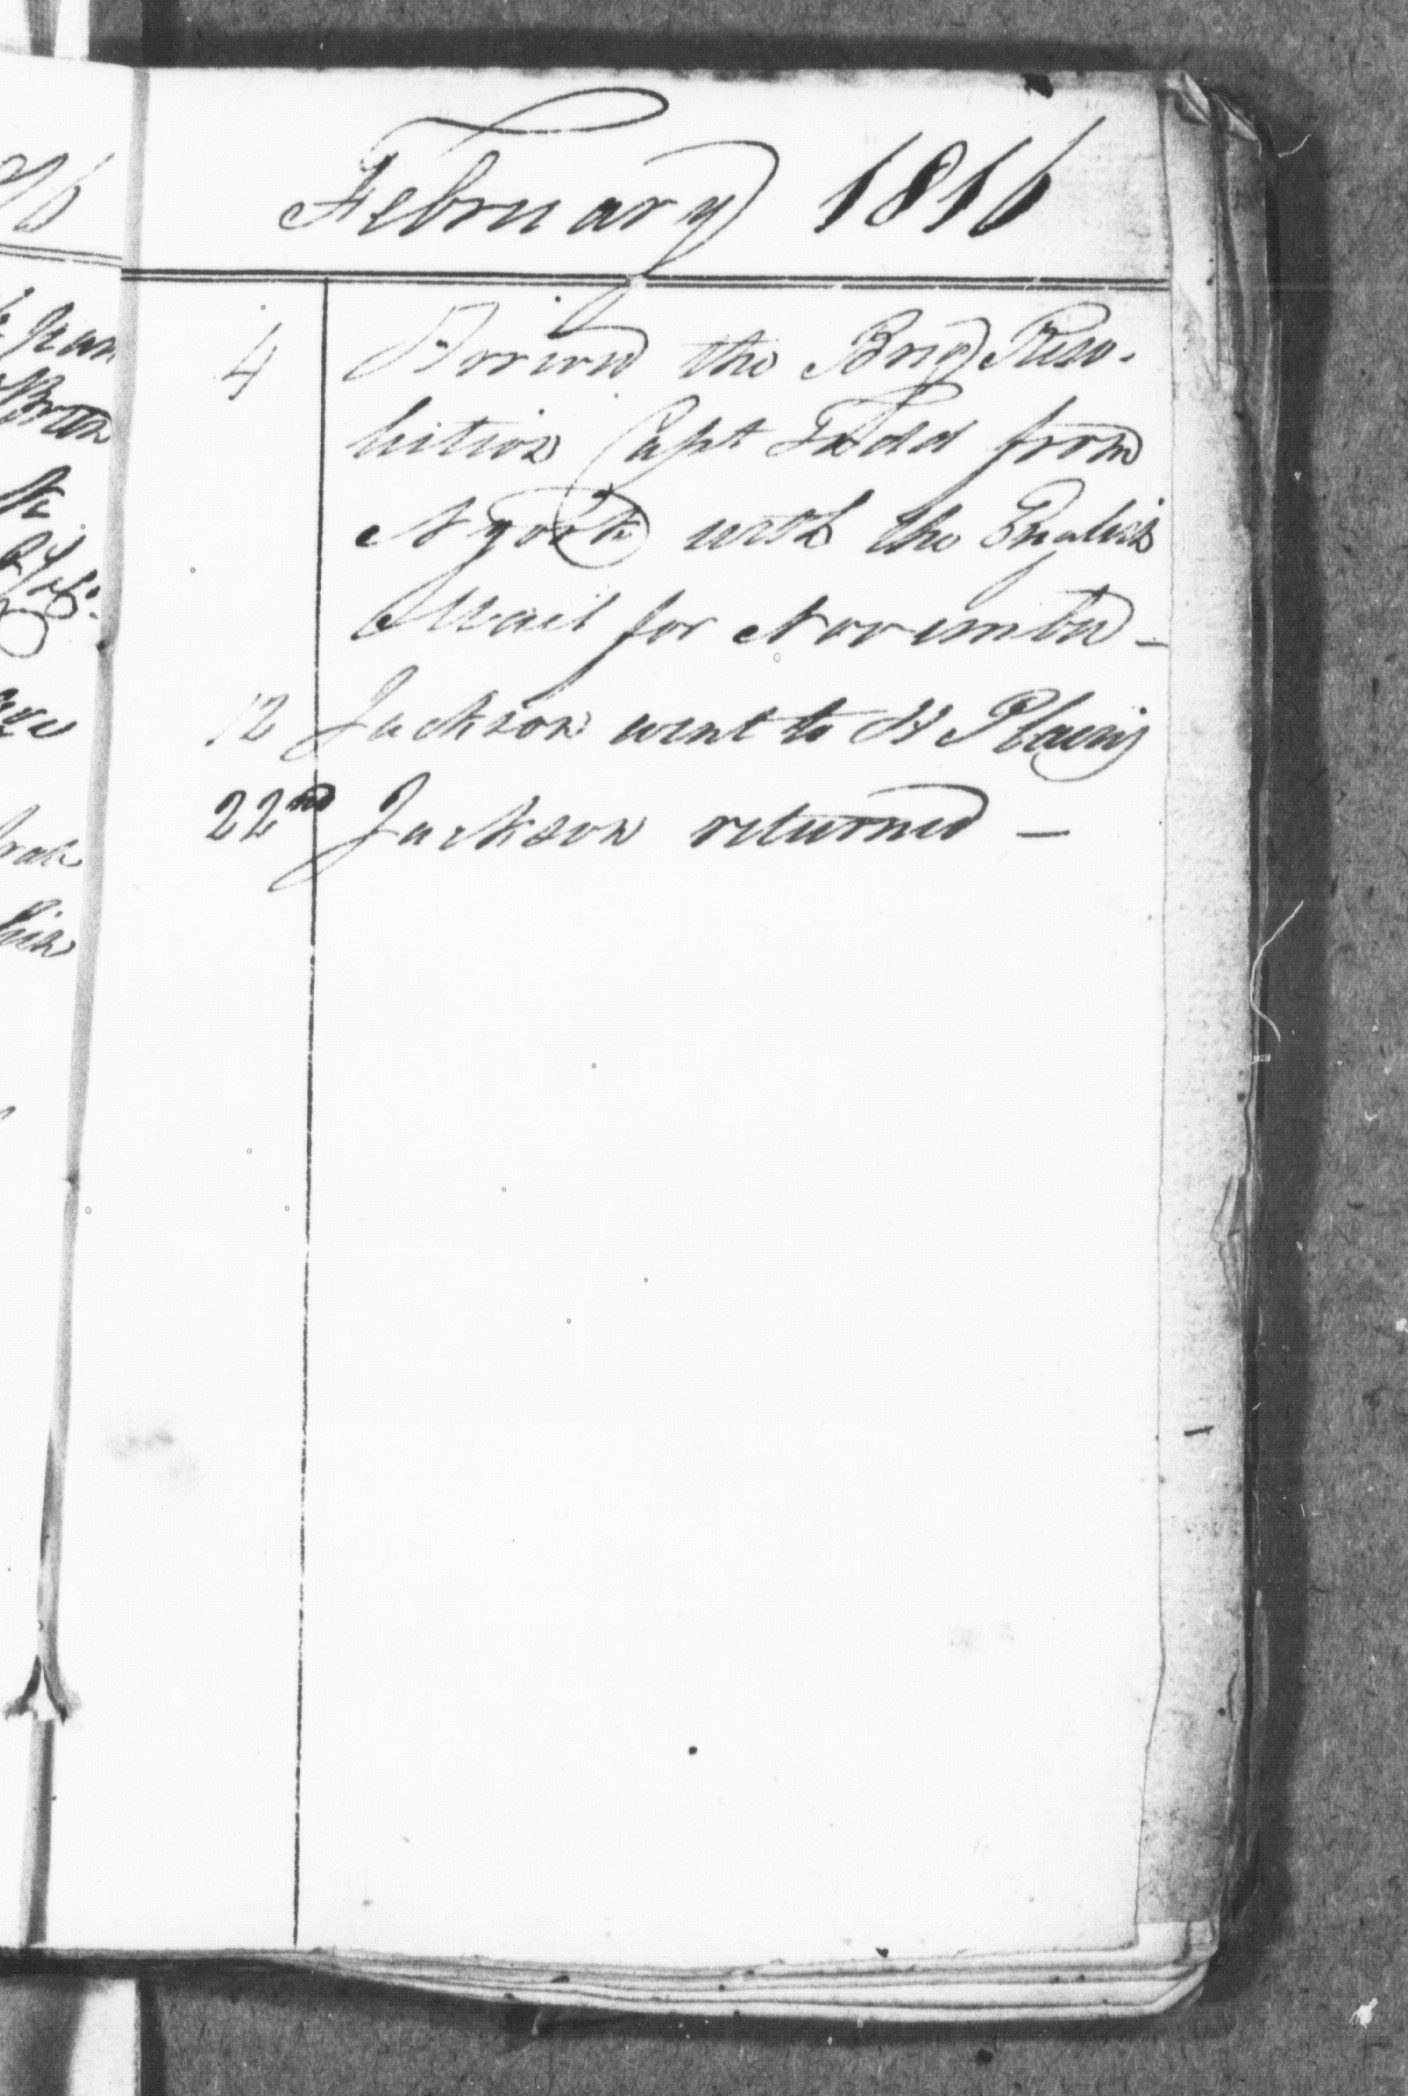 February 1816
4 Arrived the Brig Reso-
lution Capt Todd from
N york with the English
Mail for November –
12 Jackson went to H Plains
22nd Jackson returned –